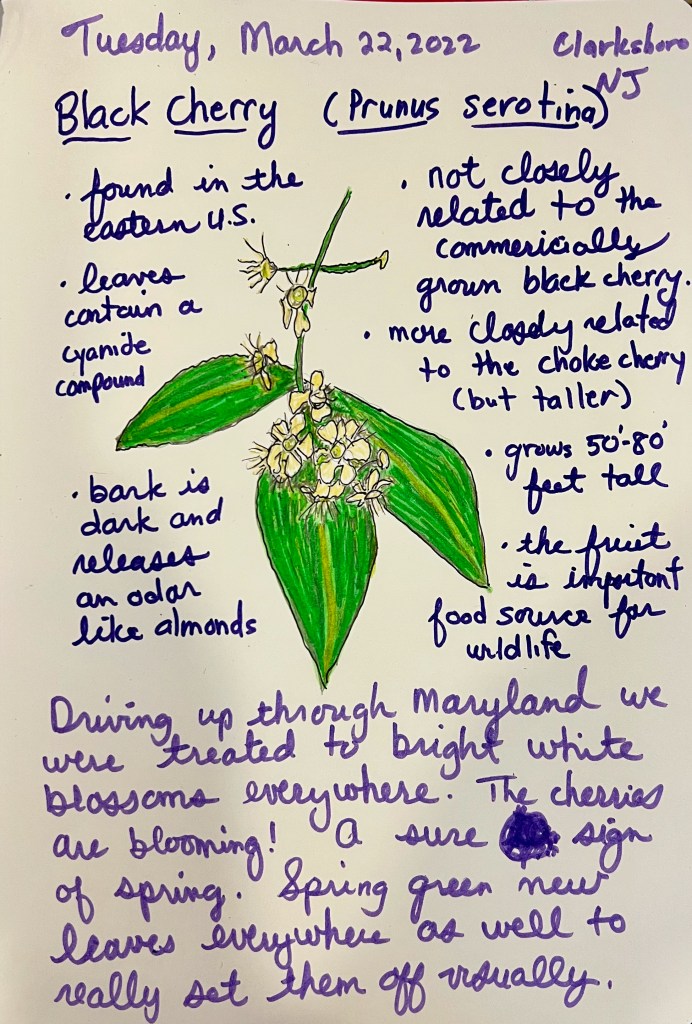 Tuesday, March 22, 2022 Clarksboro
NJ
Black Cherry (Prunus serotina)
• found in the
eastern U.S.
• leaves
contain a
cyanide
compound
• bark is
dark and
releases
an odor
like almonds
• not closely
related to the
commericially
grown black cherry.
• more closely related
to the choke cherry
(but taller)
• grows 50'-80'
feet tall
• the fruit
is important
food source for
wildlife
Driving up through Maryland we
were treated to bright white
blossoms everywhere. The cherries
are blooming! A sure sign
of spring. Spring green new
leaves everywhere as well to
really set them off visually.